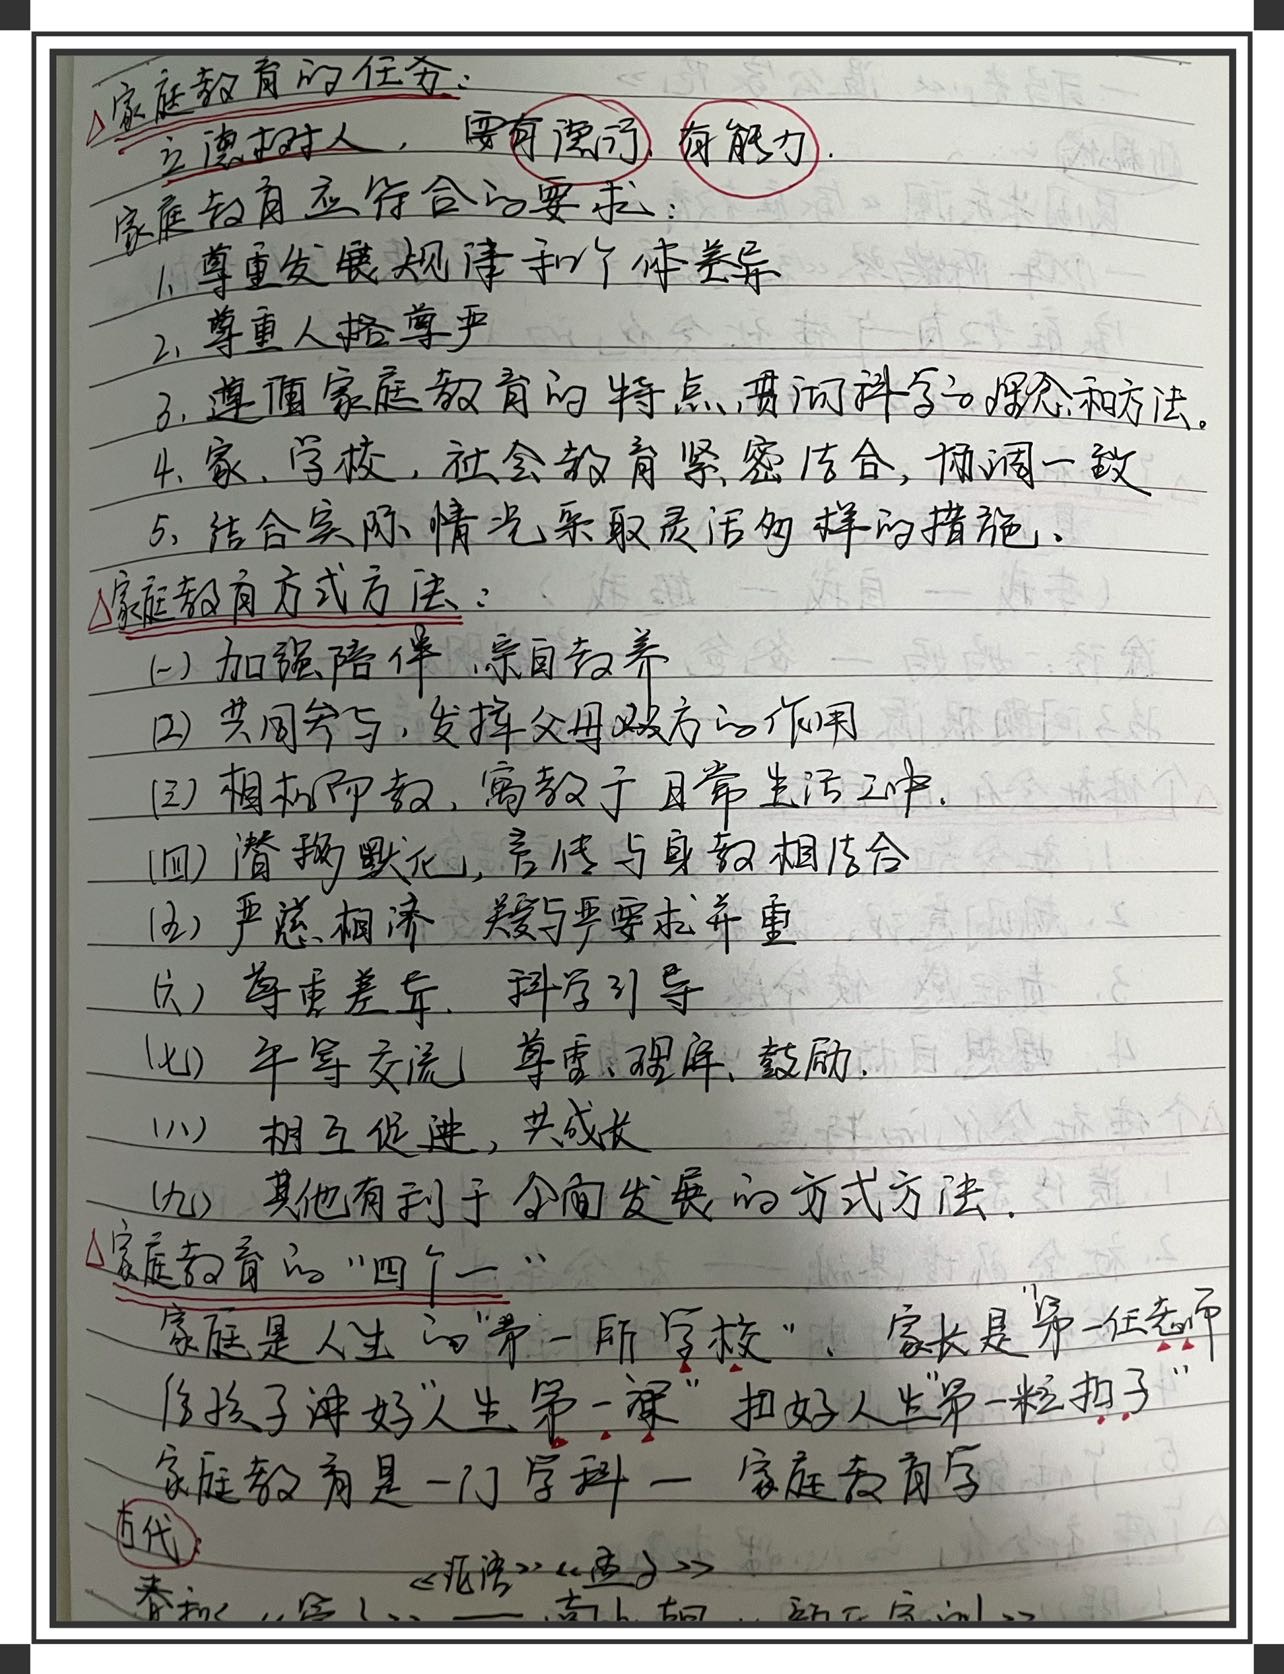 △家庭教育的任务：
立德树人， 要有德行、有能力．
家庭教育应符合的要求：
1、尊重发展规律和个体差异
2、尊重人格尊严
3、遵循家庭教育的特点，贯彻科学的理念和方法。
4、家、学校，社会教育紧密结合，协调一致
5、结合实际情况采取灵活多样的措施．
△家庭教育方式方法：
(一) 加强陪伴 亲自教养
(2) 共同参与，发挥父母双方的作用
(三) 相机而教，寓教于日常生活之中．
(四) 潜移默化，言传与身教相结合
(五) 严慈相济 关爱与严要求并重
(六) 尊重差异． 科学引导
(七) 平等交流 尊重、理解、鼓励．
(八) 相互促进，共成长
(九) 其他有利于全面发展的方式方法．
△家庭教育的“四个一”
家庭是人生的“第一所学校”、 家长是“第一任老师
给孩子讲好“人生第一课” 扣好人生“第一粒扣子”
家庭教育是一门学科一 家庭教育学
古代：
《论语》《孟子》
春秋